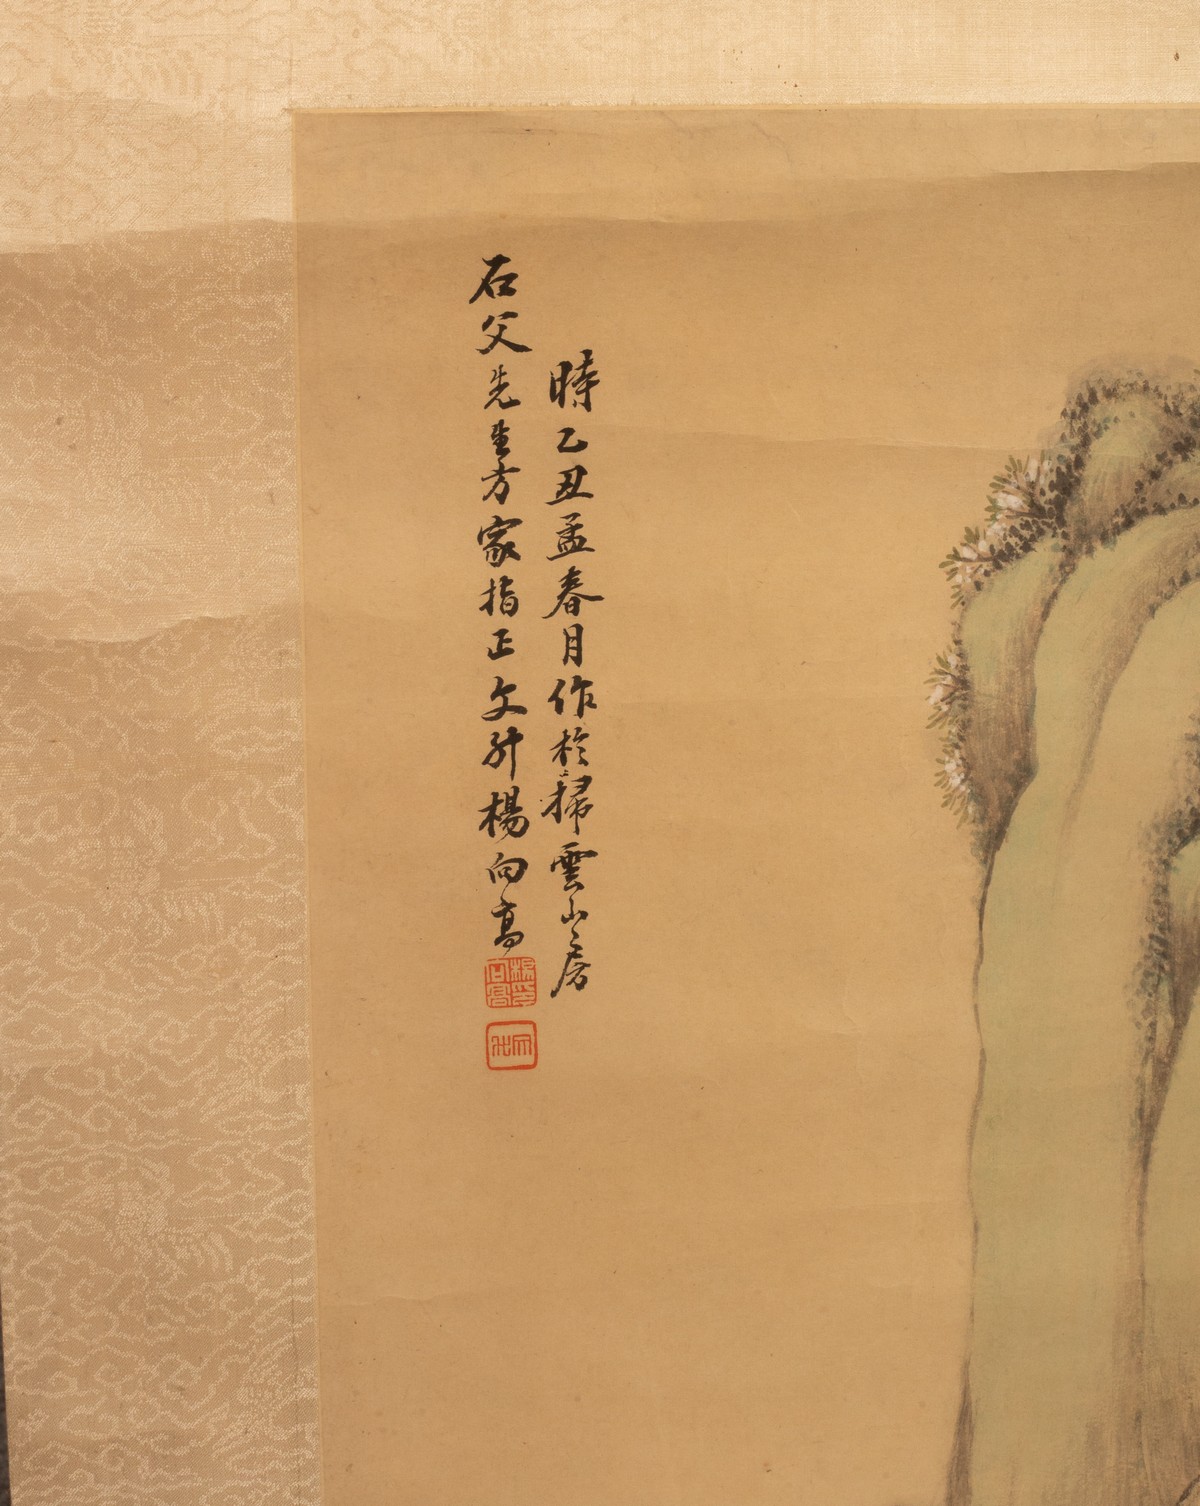 時乙丑孟春月作於掃雲山房
石父先生方家指正文升楊向高